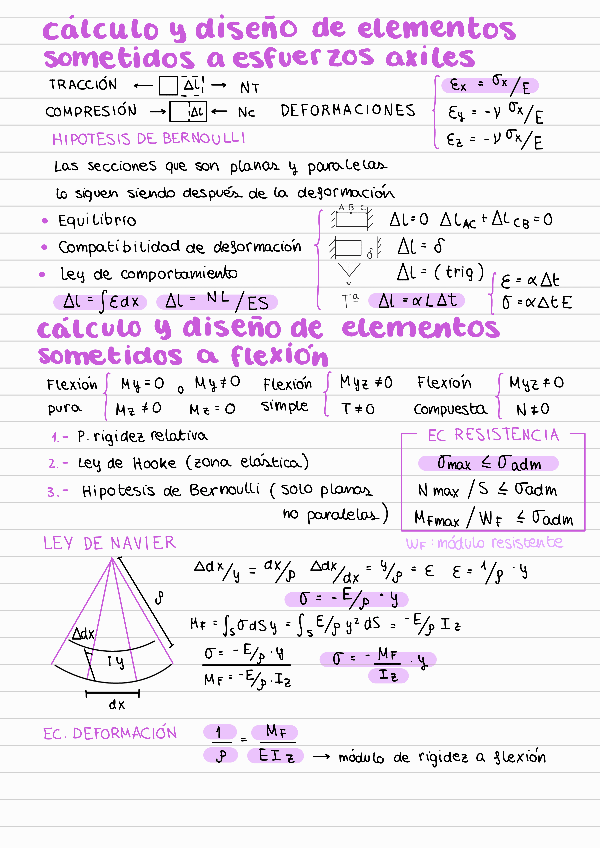 cálculo y diseño de elementos
sometidos a esfuerzos axiles
TRACCIÓN ← Δl → NT
COMPRESIÓN → Δl ← Nc DEFORMACIONES
εx = σx/E
εy = -ν σx/E
εz = -ν σx/E
HIPOTESIS DE BERNOULLI
Las secciones que son planas y paralelas
lo siguen siendo después de la deformación
• Equilibrio
A B C Δl=0 ΔlAC + ΔLCB = 0
• Compatibilidad de deformación
δ Δl = δ
• ley de comportamiento
Δl = (trig)
Δl = ∫εdx Δl = NL/ES
Tª Δl = αLΔt
ε = αΔt
σ = αΔtE
cálculo y diseño de elementos
sometidos a flexión
Flexión pura My=0 o My≠0
Mz≠0 Mz=0
Flexión simple Myz≠0
T≠0
Flexión compuesta Myz≠0
N≠0
1.- P. rigidez relativa
2.- Ley de Hooke (zona elástica)
3.- Hipotesis de Bernoulli (solo planas
no paralelas)
EC RESISTENCIA
σmax ≤ σadm
Nmax/S ≤ σadm
MFmax/WF ≤ σadm
WF: módulo resistente
LEY DE NAVIER
ρ
Δdx
y
dx
Δdx/y = dx/ρ Δdx/dx = y/ρ = ε ε = 1/ρ · y
σ = -E/ρ · y
MF = ∫s σdSy = ∫s E/ρ y² dS = -E/ρ Iz
σ = -E/ρ · y
MF = -E/ρ · Iz
σ = - MF/Iz · y
EC. DEFORMACIÓN 1/ρ = MF/EIz → módulo de rigidez a flexión